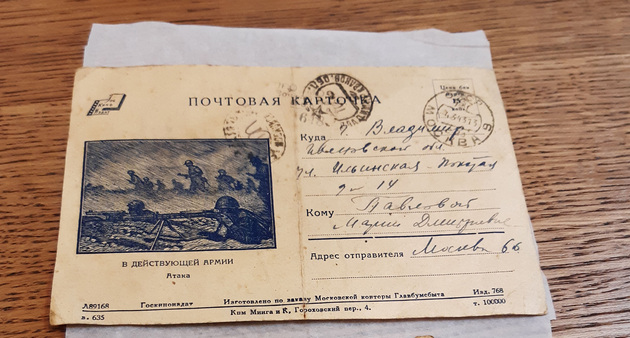 ПОЧТОВАЯ КАРТОЧКА
Цена бел.
15
МОСКВА
Куда г. Владимир
Ивановской обл
ул. Ильинская-Покатая
д. 14
Кому Павловой
Марии Дмитриевне
Адрес отправителя Москва 66
В ДЕЙСТВУЮЩЕЙ АРМИИ
Атака
Л89168
з. 635
Госкиноиздат
Изготовлено по заказу Московской конторы Главбумсбыта
Ком Минга и К, Гороховский пер., 4.
Изд. 768
т. 100000